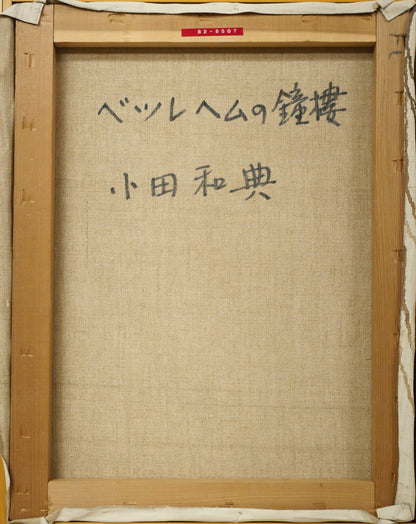 B2-6507
ベツレヘムの鐘樓
小田和典